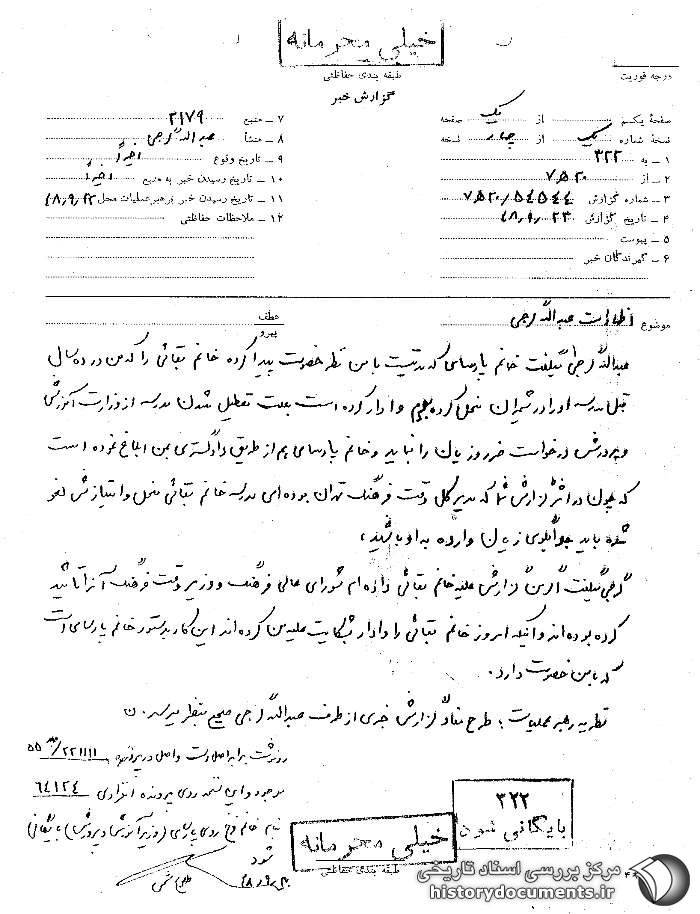 خیلی محرمانه
طبقه بندی حفاظتی
درجه فوریت
گزارش خبر
صفحه یکم از یک صفحه
نسخه شماره یک از چهار نسخه
۱ – به ۳۲۲
۲ – از ۷ﻫ۲۰
۳ – شماره گزارش ۷ﻫ۲۰/۵۴۵۴۴
۴ – تاریخ گزارش ۴۸٫۹٫۲۳
۵ – پیوست
۶ – گیرندگان خبر
۷ – منبع ۲۱۷۹
۸ – منشأ عبداله گرجی
۹ – تاریخ وقوع اخیراً
۱۰ – تاریخ رسیدن خبر به منبع اخیراً
۱۱ – تاریخ رسیدن خبر برهبر عملیات محل ۴۸٫۹٫۲۲
۱۲ – ملاحظات حفاظتی
موضوع اظهارات عبداله گرجی
عطف
پیرو
عبداله گرجی میگفت خانم پارسای که مدتیست با من نظر خصومت پیدا کرده خانم بقائی را که من در ده سال
قبل مدرسه او را در شمیران منحل کرده بودم وادار کرده است بعلت تعطیل شدن مدرسه از وزارت آموزش
و پرورش درخواست ضرر و زیان را نماید و خانم پارسای هم از طریق دادگستری بمن ابلاغ نموده است
که چون در اثر گزارش شما که مدیر کل وقت فرهنگ تهران بوده‌ای مدرسه خانم بقائی منحل و امتیازش لغو
شده باید جوابگوی زیان وارده به او باشید،
گرجی میگفت اگر من گزارش علیه خانم بقائی داده‌ام شورای عالی فرهنگ و وزیر وقت فرهنگ آنرا تائید
کرده بوده‌اند و اینکه امروز خانم بقائی را وادار بشکایت علیه من کرده‌اند این کار بدستور خانم پارسای است
که با من خصومت دارد.
نظریه رهبر عملیات: طرح مفاد گزارش خبری از طرف عبداله گرجی صحیح بنظر میرسد. ن
رونوشت برابر اصل است و اصل در پرونده ۲۲۱۱۱۱
موجود و این نسخه روی پرونده انفرادی ۶۴۱۲۴
بنام خانم فرخ روی پارسای (وزیر آموزش و پرورش) بایگانی
شود
۳۲۲
بایگانی شود
خیلی محرمانه
طبقه بندی حفاظتی
مرکز بررسی اسناد تاریخی
historydocuments.ir